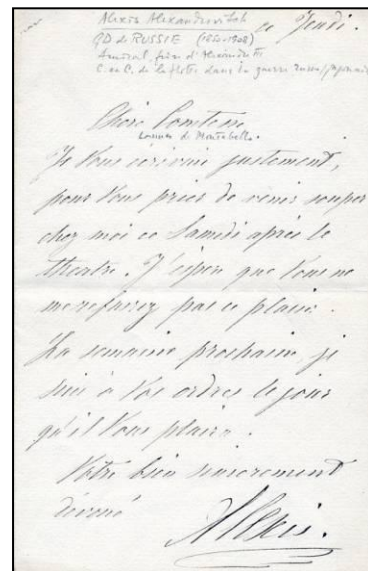 Alexis Alexandrovitch
ce Jeudi.
GD de RUSSIE (1850-1908)
Amiral, frère d'Alexandre III
C. en C. de la flotte dans la guerre russo/japonaise
Chère Comtesse
Lannes de Montebello.
Je Vous écrivais justement,
pour Vous prier de venir souper
chez moi ce Samedi après le
théatre. J'espère que Vous ne
me refuserez pas ce plaisir.
La semaine prochaine je
suis à Vos ordres le jour
qu'il Vous plaira.
Votre bien sincèrement
dévoué
Alexis.